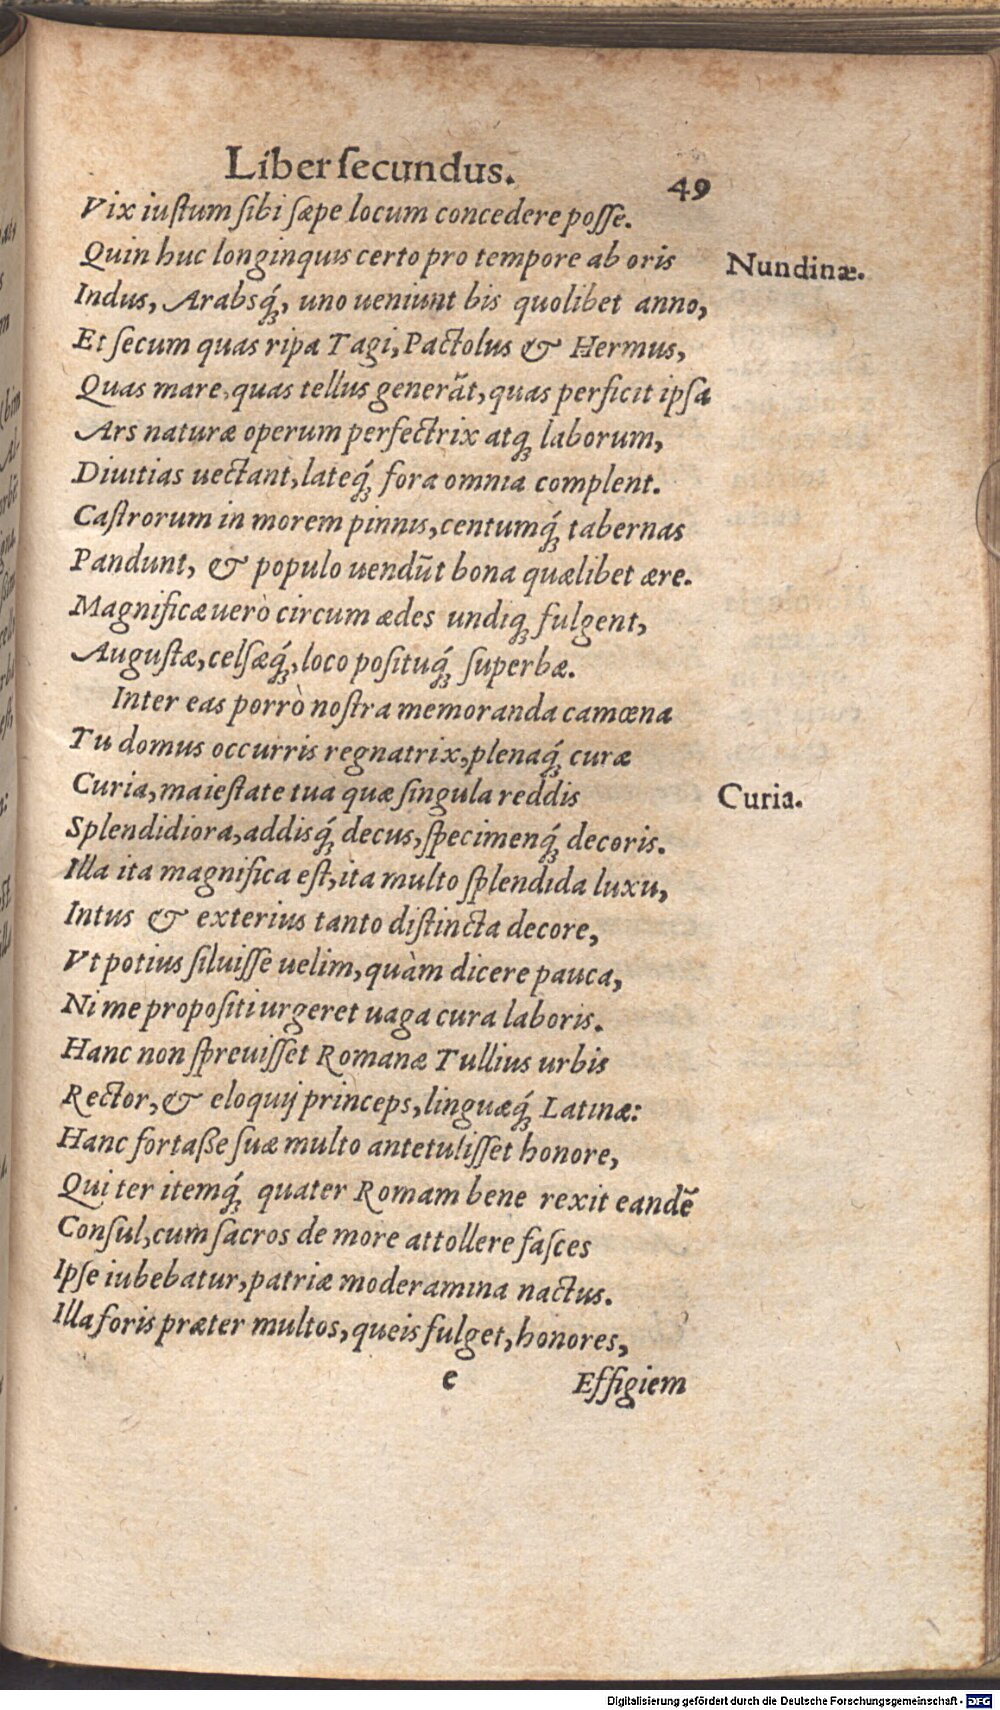 Liber ſecundus. 49
Vix iuſtum ſibi ſæpe locum concedere poſſe.
Quin huc longinquis certo pro tempore ab oris
Nundinæ.
Indus, Arabsq́;, uno ueniunt bis quolibet anno,
Et ſecum quas ripa Tagi, Pactolus & Hermus,
Quas mare, quas tellus generāt, quas perficit ipſa
Ars naturæ operum perfectrix atq; laborum,
Diuitias uectant, lateq́; fora omnia complent.
Caſtrorum in morem pinnis, centumq́; tabernas
Pandunt, & populo uendūt bona quælibet ære.
Magnificæ uerò circum ædes undiq; fulgent,
Auguſtæ, celſæq́;, loco poſituq́; ſuperbæ.
Inter eas porrò noſtra memoranda camœna
Tu domus occurris regnatrix, plenaq́; curæ
Curia, maieſtate tua quæ ſingula reddis
Curia.
Splendidiora, addisq́; decus, ſpecimenq́; decoris.
Illa ita magnifica eſt, ita multo ſplendida luxu,
Intus & exterius tanto diſtincta decore,
Vt potius ſiluiſſe uelim, quàm dicere pauca,
Ni me propoſiti urgeret uaga cura laboris.
Hanc non ſpreuiſſet Romanæ Tullius urbis
Rector, & eloquij princeps, linguæq́; Latinæ:
Hanc fortaße ſuæ multo antetuliſſet honore,
Qui ter itemq́; quater Romam bene rexit eandē
Conſul, cum ſacros de more attollere faſces
Ipſe iubebatur, patriæ moderamina nactus.
Illa foris præter multos, queis fulget, honores,
e Effigiem
Digitalisierung gefördert durch die Deutsche Forschungsgemeinschaft - DFG